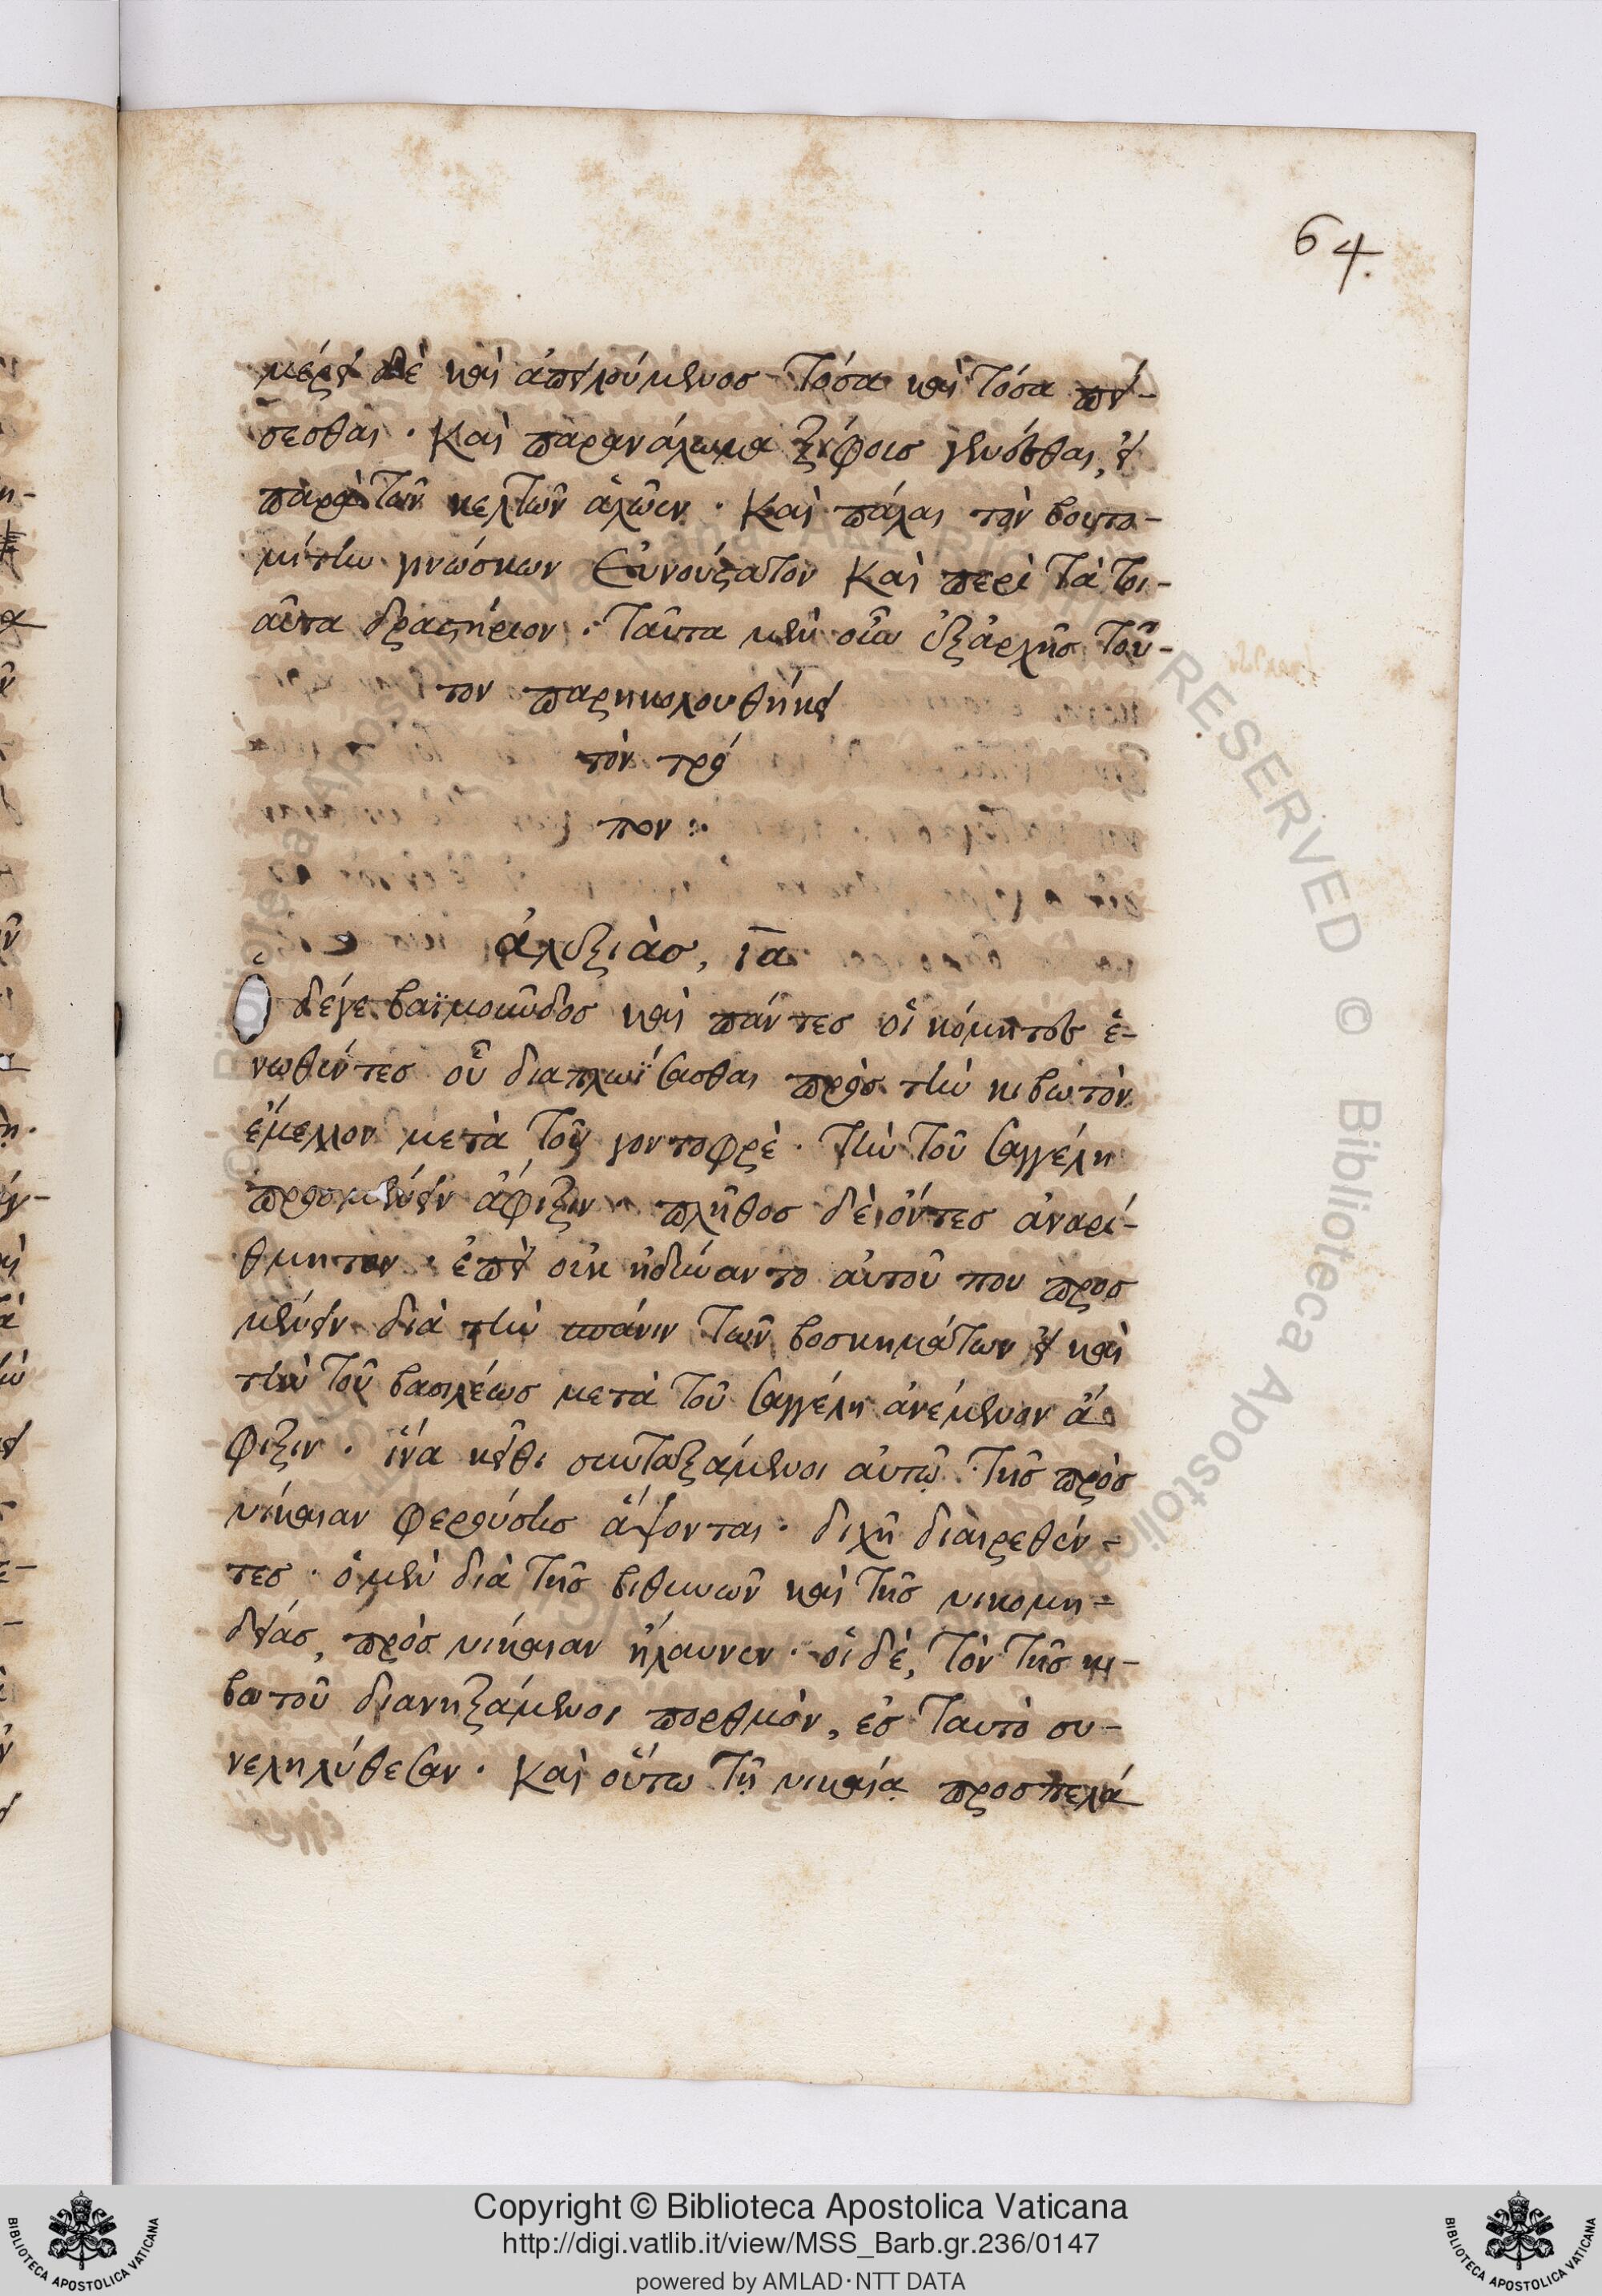 64.
μέρει δὲ καὶ ἀπειλούμενος τόσα καὶ τόσα πεί-
σεσθαι· καὶ παρανάλωμα ξίφοις γενέσθαι, εἰ
παρὰ τῶν κελτῶν ἁλῶεν· Καὶ πάλαι τὸν βουτο-
μίτην γινώσκων εὐνούστατον καὶ περὶ τὰ τοι-
αῦτα δραστήριον· ταῦτα μὲν οὖν ἐξἀρχῆς τοῦ-
τον παρηκολουθήκει
τὸν τρό
πον:·
ἀλεξιὰς, ια
Ὁ δέγε βαϊμοῦνδος καὶ πάντες οἱ κόμητες ἑ-
νωθέντες οὗ διαπλωΐσασθαι πρὸς τὴν κιβωτὸν
ἔμελλον μετὰ τοῦ γοντοφρὲ· τὴν τοῦ σαγγέλη
προσμένειν ἄφιξιν· πλῆθος δὲ ὄντες ἀναρί-
θμητον· ἐπεὶ οὐκ ἠδύναντο αὐτοῦ που προσ
μένειν διὰ τὴν σπάνιν τῶν βοσκημάτων εἰ καὶ
τὴν τοῦ βασιλέως μετὰ τοῦ σαγγέλη ἀνέμενον ἄ
φιξιν· ἵνα κεῖθι συνταξάμενοι αὐτῷ τῆς πρὸς
νίκαιαν φερούσης ἅψονται· διχῆ διαιρεθέν-
τες· ὁ μὲν διὰ τῆς βιθυνῶν καὶ τῆς νικομη-
δείας, πρὸς νίκαιαν ἤλαυνεν· οἱ δὲ, τὸν τῆς κι-
βωτοῦ διανηξάμενοι πορθμὸν, ἐς ταυτὸ συ-
νεληλύθεσαν· Καὶ οὕτω τῇ νικαίᾳ προσπελά
© Biblioteca Apostolica Vaticana ALL RIGHTS RESERVED © Biblioteca Apostolica
Copyright © Biblioteca Apostolica Vaticana
http://digi.vatlib.it/view/MSS_Barb.gr.236/0147
powered by AMLAD·NTT DATA
BIBLIOTECA APOSTOLICA VATICANA
BIBLIOTECA APOSTOLICA VATICANA